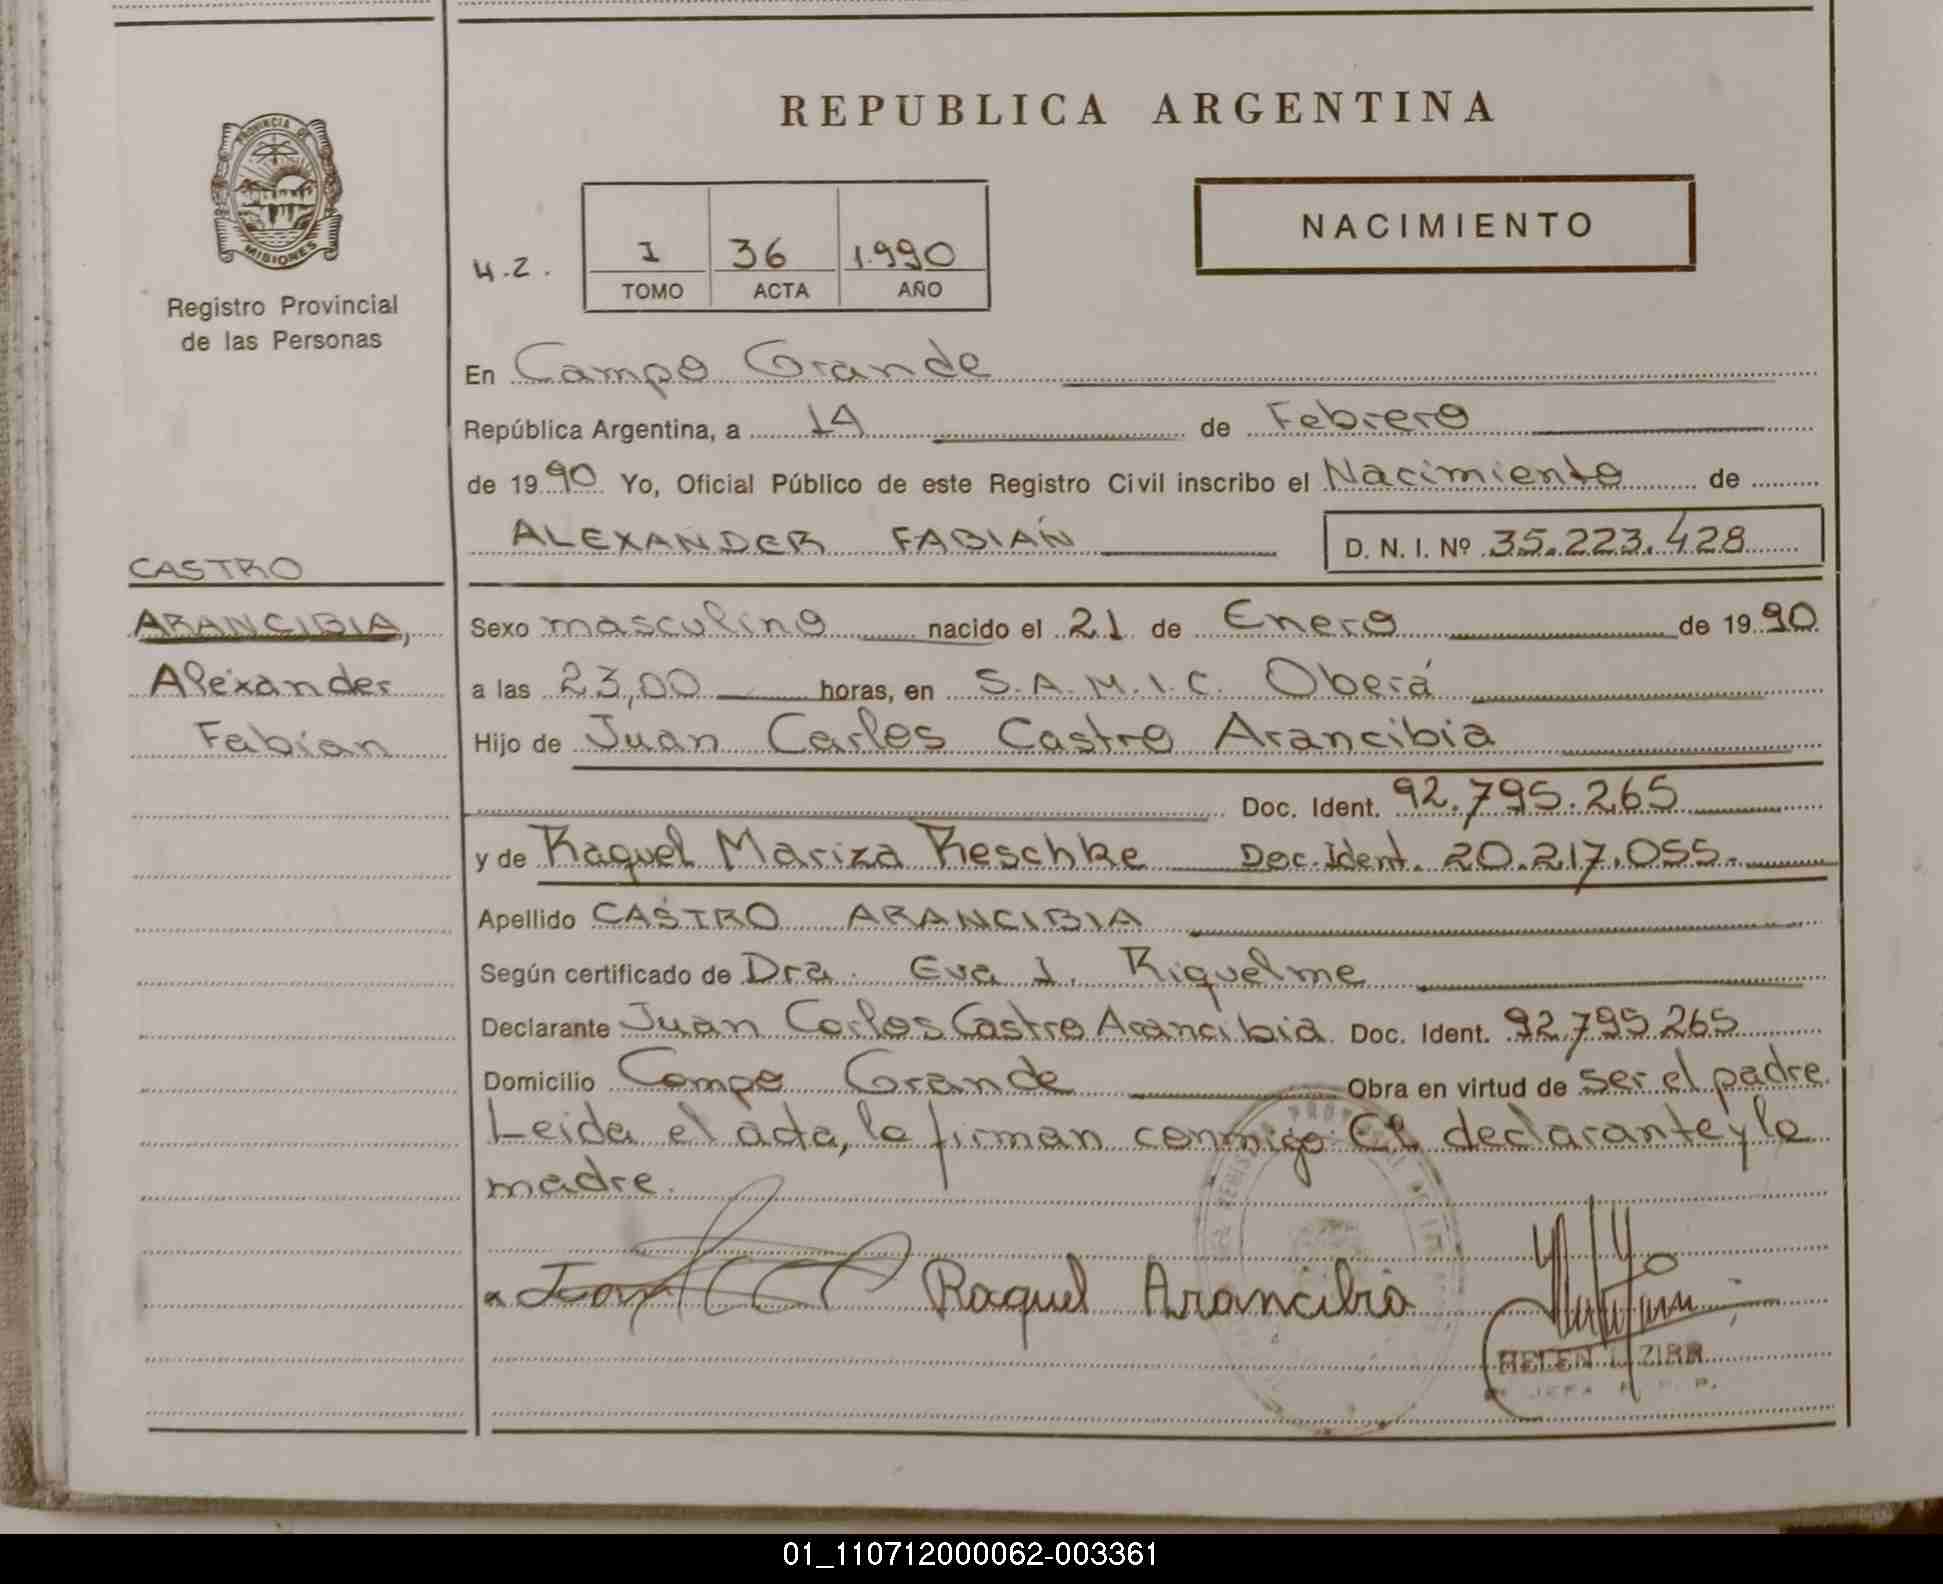 REPUBLICA ARGENTINA
PROVINCIA DE MISIONES
Registro Provincial
de las Personas
NACIMIENTO
4.2.
I 36 1.990
TOMO ACTA AÑO
En Campo Grande
República Argentina, a 14 de Febrero
de 1990 Yo, Oficial Público de este Registro Civil inscribo el Nacimiento de
ALEXANDER FABIÁN D. N. I. Nº 35.223.428
CASTRO
ARANCIBIA,
Alexander
Fabián
Sexo masculino nacido el 21 de Enero de 1990
a las 23,00 horas, en S.A.M.I.C. Oberá
Hijo de Juan Carlos Castro Arancibia
Doc. Ident. 92.795.265
y de Raquel Mariza Reschke Doc. Ident. 20.217.055.
Apellido CASTRO ARANCIBIA
Según certificado de Dra. Eva I. Riquelme
Declarante Juan Carlos Castro Arancibia Doc. Ident. 92.795.265
Domicilio Campo Grande Obra en virtud de ser el padre.
Leida el acta, la firman conmigo: El declarante y la
madre.
Raquel Arancibia
HELEN ZIRR
JEFA R. P. P.
01_110712000062-003361